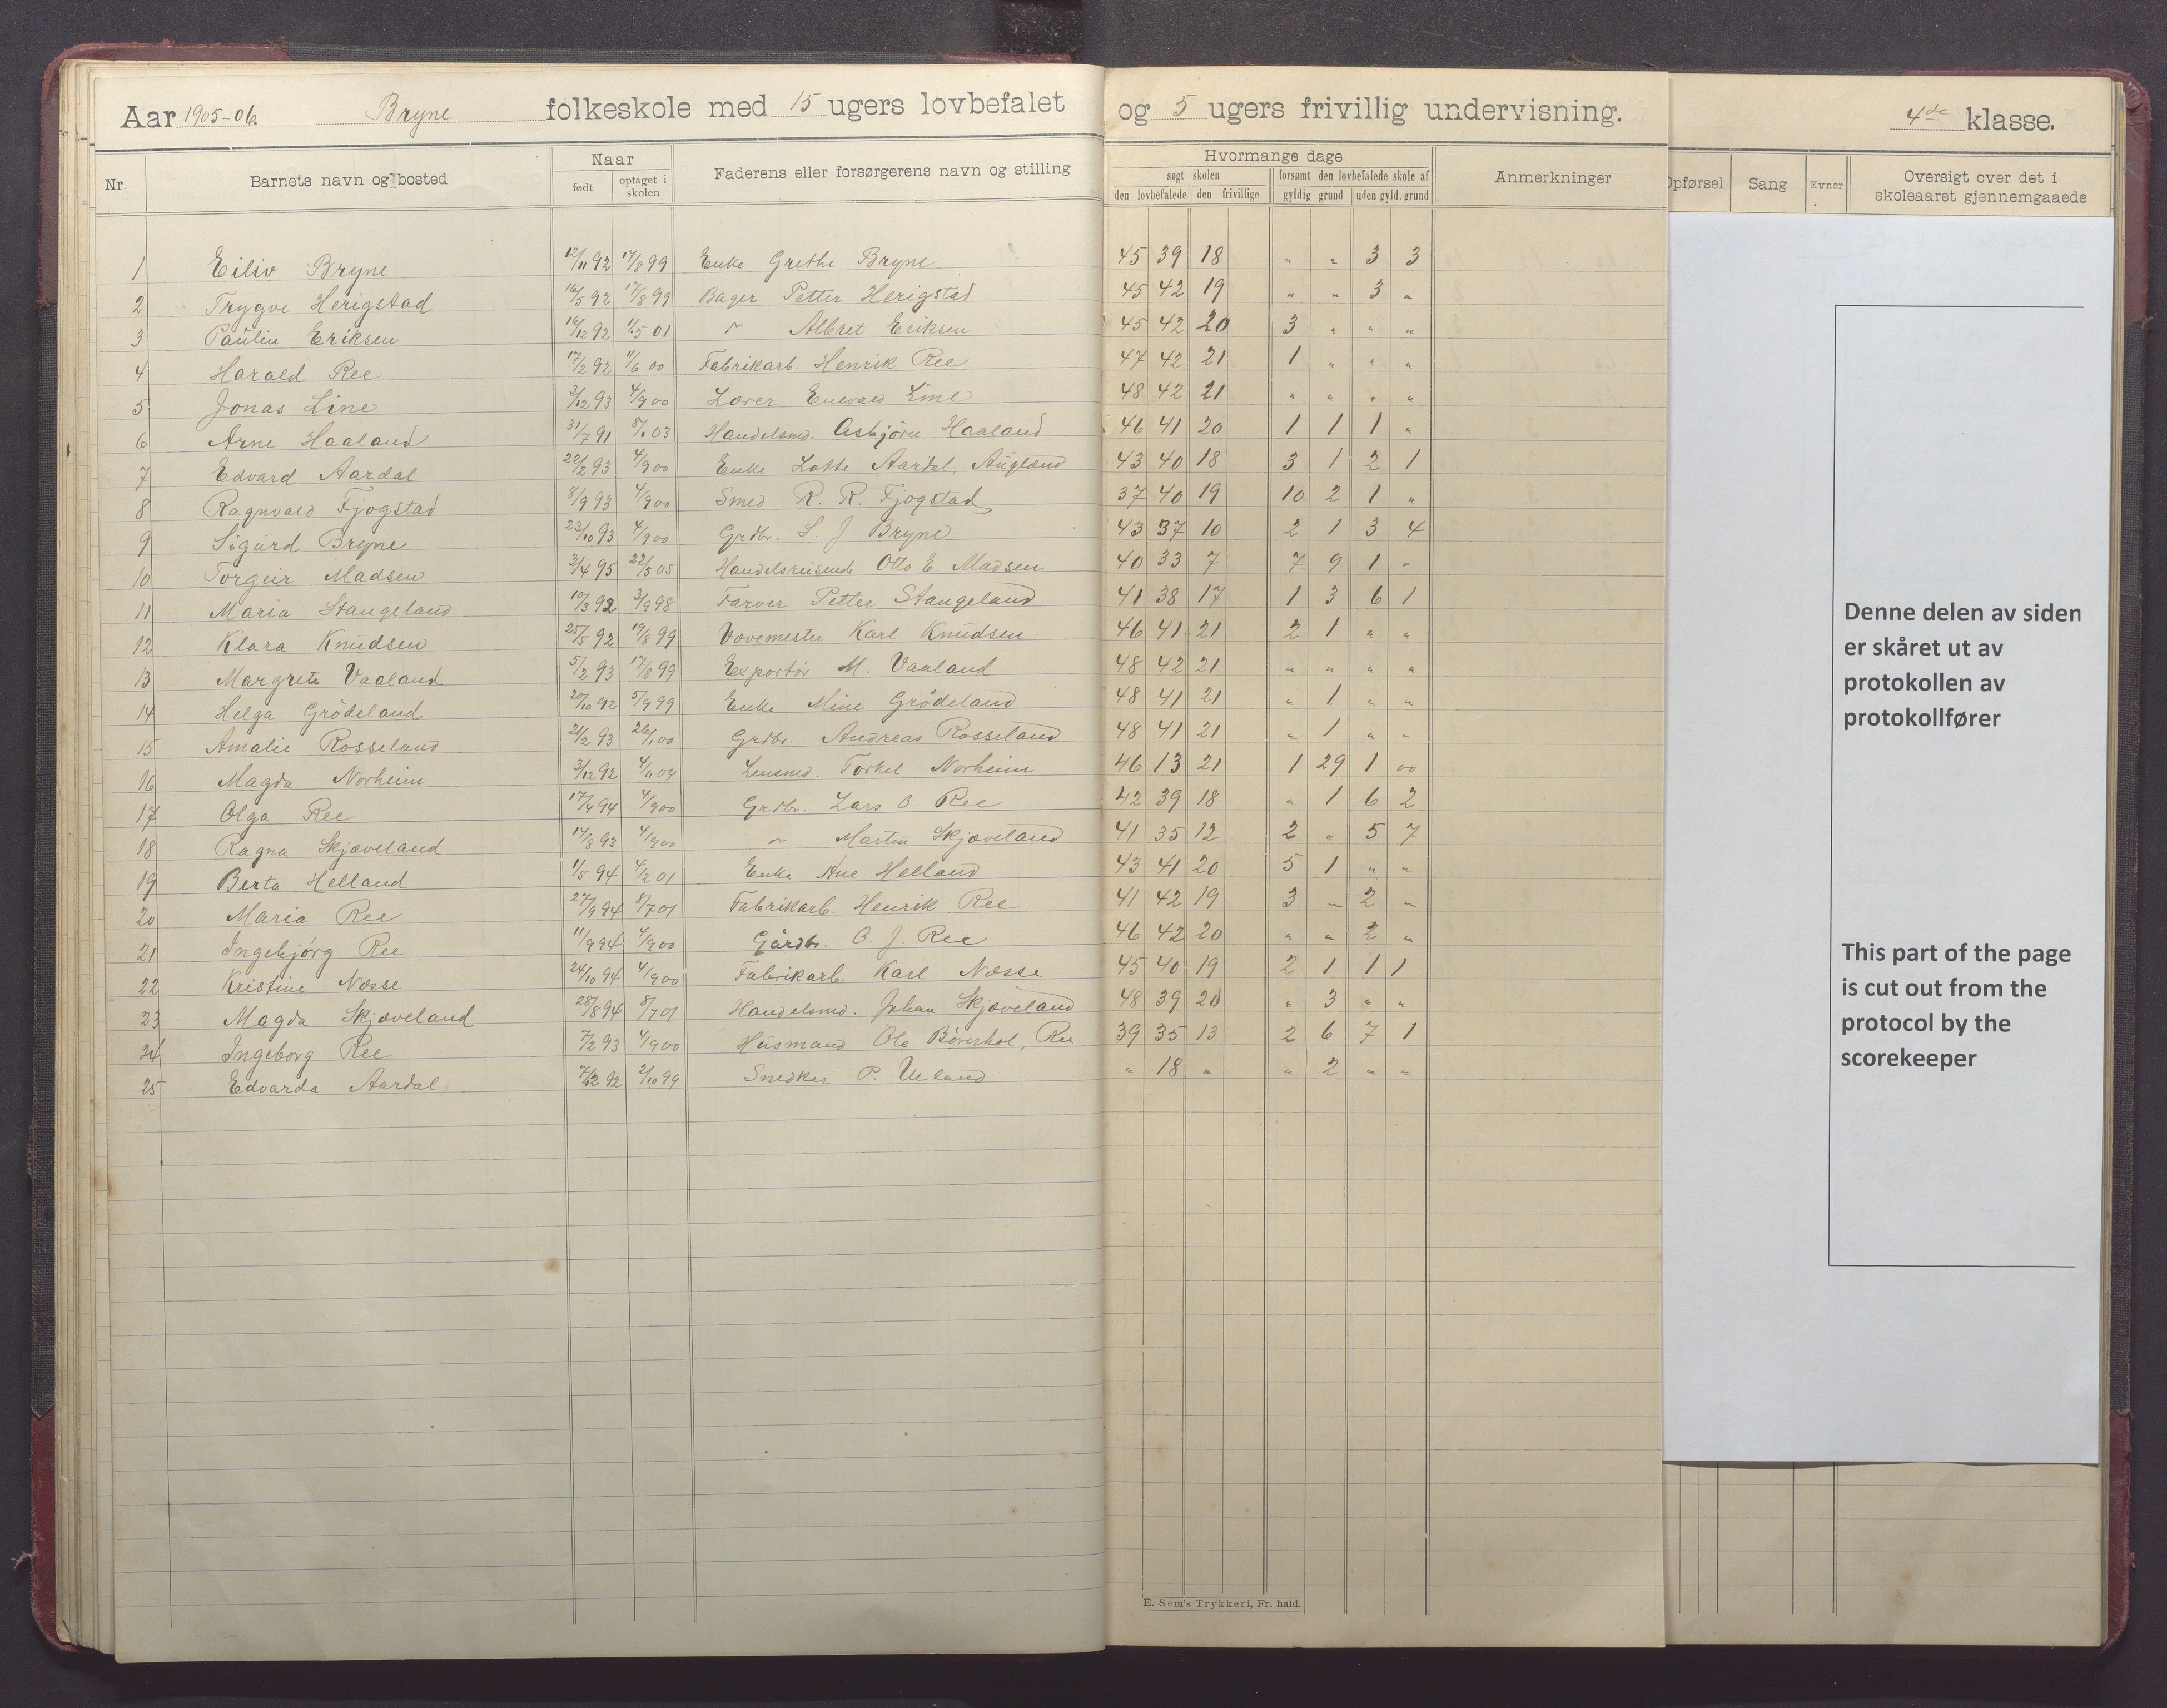 Aar 1905-06. Bryne folkeskole med 15 ugers lovbefalet og 5 ugers frivillig undervisning. 4de klasse.
Nr. Barnets navn og bosted Naar født optaget i skolen Faderens eller forsørgerens navn og stilling Hvormange dage søgt skolen den lovbefalede den frivillige forsømt den lovbefalede skole af gyldig grund uden gyld. grund Anmerkninger Opførsel Sang Evner Oversigt over det i skoleaaret gjennemgaaede
1 Eiliv Bryne 12/11 92 17/8 99 Enke Grethe Bryne 45 39 18 " " 3 3
2 Trygve Herigstad 16/5 92 17/8 99 Bager Petter Herigstad 45 42 19 " " 3 "
3 Paulin Eriksen 16/12 92 1/5 01 " Albret Eriksen 45 42 20 3 " " "
4 Harald Ree 17/2 92 11/6 00 Fabrikarb. Henrik Ree 47 42 21 1 " " "
5 Jonas Line 3/12 93 4/9 00 Lærer Enevald Line 48 42 21 " " " "
6 Arne Haaland 31/7 91 8/1 03 Handelsmd. Asbjørn Haaland 46 41 20 1 1 1 "
7 Edvard Aardal 22/2 93 4/9 00 Enke Lotte Aardal, Augland 43 40 18 3 1 2 1
8 Ragnvald Fjogstad 8/9 93 4/9 00 Smed R. R. Fjogstad 37 40 19 10 2 1 "
9 Sigurd Bryne 23/10 93 4/9 00 Grdbr. S. J. Bryne 43 37 10 2 1 3 4
10 Torgeir Madsen 3/4 95 22/5 05 Handelsreisende Otto E. Madsen 40 33 7 7 9 1 "
11 Maria Stangeland 10/3 92 3/9 98 Farver Petter Stangeland 41 38 17 1 3 6 1
12 Klara Knudsen 25/5 92 19/8 99 Vævemester Karl Knudsen 46 41 21 2 1 " "
13 Margrete Vaaland 5/2 93 17/8 99 Exportør M. Vaaland 48 42 21 " " " "
14 Helga Grödeland 20/10 92 5/9 99 Enke Mine Grödeland 48 41 21 " 1 " "
15 Amalie Rosseland 21/2 93 26/1 00 Grdbr. Andreas Rosseland 48 41 21 " 1 " "
16 Magda Norheim 3/12 92 4/11 04 Lensmd. Torkel Norheim 46 13 21 1 29 1 "
17 Olga Ree 17/4 94 4/9 00 Grdbr. Lars O. Ree 42 39 18 " 1 6 2
18 Ragna Skjæveland 14/8 93 4/9 00 " Martin Skjæveland 41 35 12 2 " 5 7
19 Berta Helland 1/5 94 4/2 01 Enke Ane Helland 43 41 20 5 1 " "
20 Maria Ree 27/9 94 8/7 01 Fabrikarb. Henrik Ree 41 42 19 3 " 2 "
21 Ingebjørg Ree 11/9 94 4/9 00 Gårdbr. O. J. Ree 46 42 20 " " 2 "
22 Kristine Næsse 24/10 94 4/9 00 Fabrikarb. Karl Næsse 45 40 19 2 1 1 1
23 Magda Skjæveland 28/8 94 8/7 01 Handelsmd. Johan Skjæveland 48 39 20 " 3 " "
24 Ingeborg Ree 7/2 93 4/9 00 Husmand Ole Ree 39 35 13 2 6 7 1
25 Edvarda Aardal 7/12 92 2/10 99 Snedker P. Ueland " 18 " " 2 " "
Denne delen av siden
er skåret ut av
protokollen av
protokollfører
This part of the page
is cut out from the
protocol by the
scorekeeper
E. Sem's Trykkeri, Fr. hald.